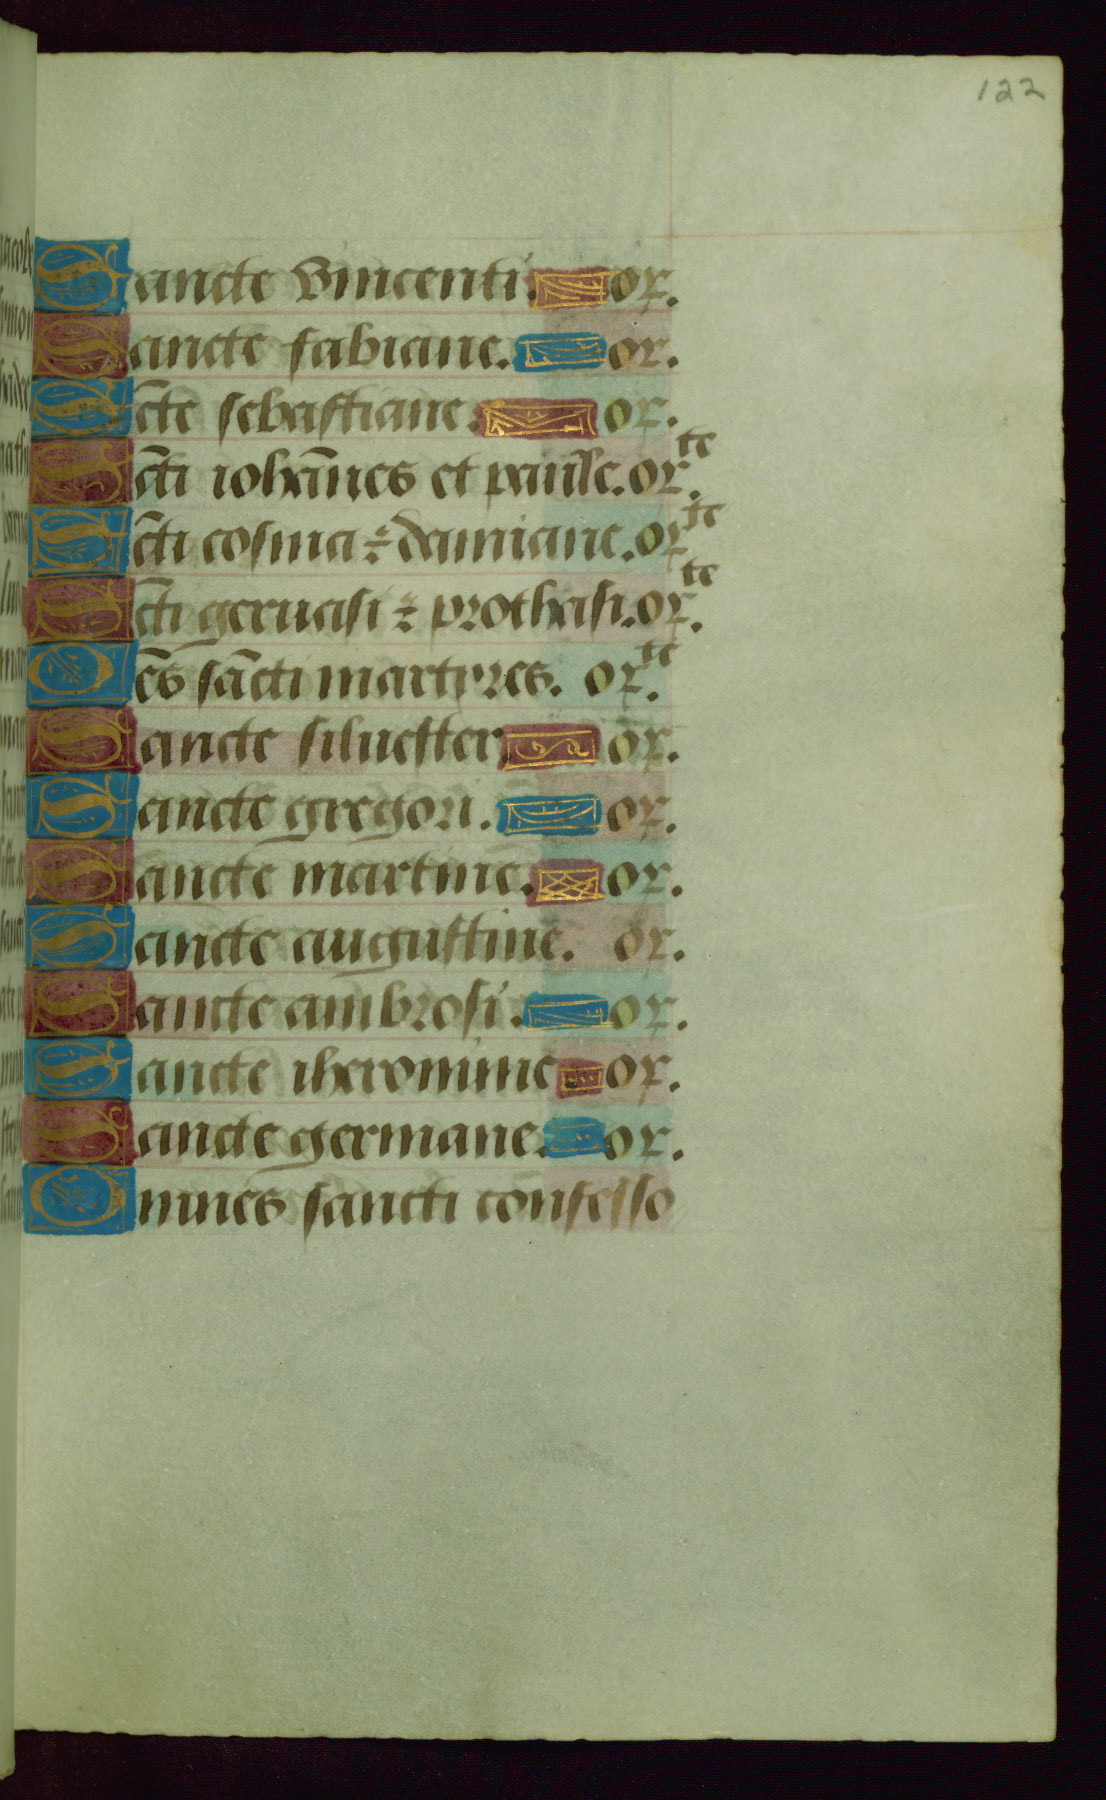 122
Sancte vincenti. or.
Sancte fabiane. or.
Scte sebastiane. or.
Scti iohānes et paule. orte.
Scti cosma ⁊ damiane. orte
Scti geruasi ⁊ prothasi. orte.
Oēs sācti martyres. orte.
Sancte siluester or.
Sancte gregori. or.
Sancte martine. or.
Sancte augustine. or.
Sancte ambrosi. or.
Sancte iheronime or.
Sancte germane. or.
Omnes sancti confesso